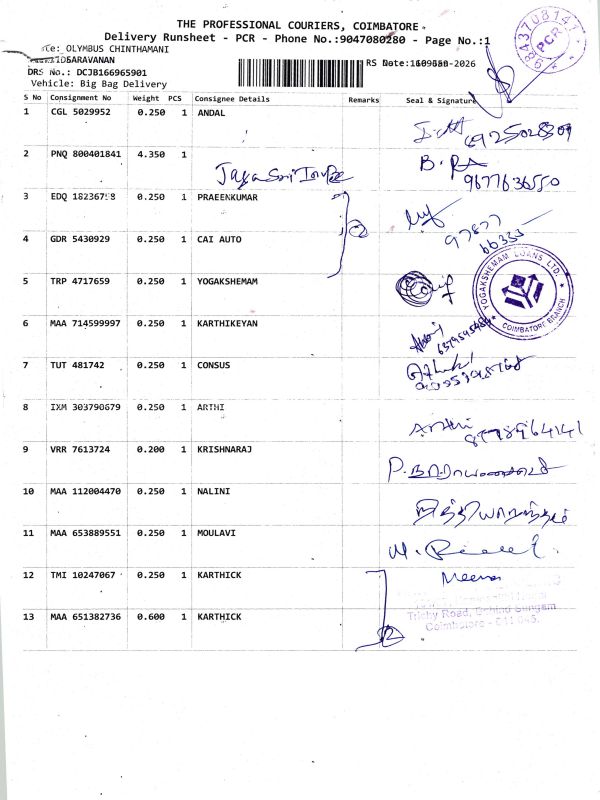 THE PROFESSIONAL COURIERS, COIMBATORE
Delivery Runsheet - PCR - Phone No.:9047080280 - Page No.:1
OLYMBUS CHINTHAMANI
SARAVANAN
RS Date:
-2026
DRS No.: DCJB166965901
Vehicle: Big Bag Delivery
S No Consignment No Weight PCS Consignee Details Remarks Seal & Signature
1 CGL 5029952 0.250 1 ANDAL
2 PNQ 800401841 4.350 1
B.
9677636550
3 EDQ 0.250 1 PRAEENKUMAR
97877
66335
4 GDR 5430929 0.250 1 CAI AUTO
5 TRP 4717659 0.250 1 YOGAKSHEMAM
YOGAKSHEMAM LOANS LTD.
COIMBATORE BRANCH
6 MAA 714599997 0.250 1 KARTHIKEYAN
7 TUT 481742 0.250 1 CONSUS
8 IXM 303790679 0.250 1 ARTHI
Arthi
9 VRR 7613724 0.200 1 KRISHNARAJ
10 MAA 112004470 0.250 1 NALINI
11 MAA 653889551 0.250 1 MOULAVI
12 TMI 10247067 0.250 1 KARTHICK
Meena
13 MAA 651382736 0.600 1 KARTHICK
Trichy Road, Behind Sungam
Coimbatore - 641 045.
2
9843708141
PCR